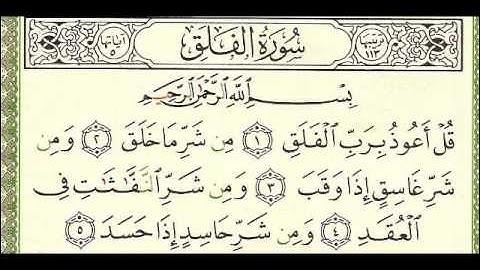 ترتيبها ١١٣ سُورَةُ الْفَلَقِ آياتها ٥
بِسْمِ اللَّهِ الرَّحْمَٰنِ الرَّحِيمِ
قُلْ أَعُوذُ بِرَبِّ الْفَلَقِ ١ مِن شَرِّ مَا خَلَقَ ٢ وَمِن
شَرِّ غَاسِقٍ إِذَا وَقَبَ ٣ وَمِن شَرِّ النَّفَّاثَاتِ فِي
الْعُقَدِ ٤ وَمِن شَرِّ حَاسِدٍ إِذَا حَسَدَ ٥